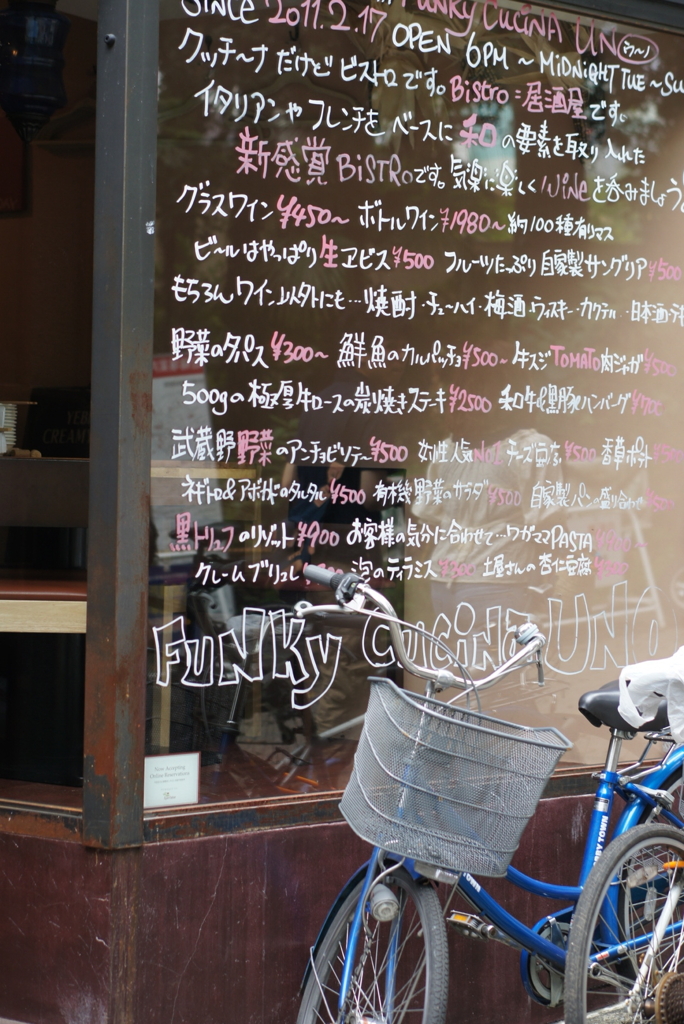 SINCE 2011.2.17 Funky CucinA UNO ウーノ
OPEN 6PM ~ MiDNiGHT TUE ~ Su
クッチーナ だけど ビストロです。Bistro = 居酒屋です。
イタリアンや フレンチを ベースに 和の要素を取り入れた
新感覚 BiSTRoです。気楽に楽しく Wineを呑みましょう
グラスワイン ¥450~ ボトルワイン ¥1980~ 約100種有リマス
ビールはやっぱり 生ヱビス ¥500 フルーツたっぷり 自家製サングリア ¥500
もちろん ワイン以外にも…焼酎・チューハイ・梅酒・ウィスキー・カクテル・日本酒
野菜のタパス ¥300~ 鮮魚のカルパッチョ ¥500~ 牛スジ TOMATO肉ジャガ ¥500
500gの極厚牛ロースの炭焼きステーキ ¥2500 和牛&黒豚ハンバーグ ¥700
武蔵野野菜のアンチョビソテー ¥500 女性人気No1 チーズ豆腐 ¥500 香草ポテト ¥500
ネギトロ&アボカドのタルタル ¥500 有機野菜のサラダ ¥500 自家製パンの盛り合わせ ¥500
黒トリュフのリゾット ¥900 お客様の気分に合わせて…ワガママPASTA
クレームブリュレ 泡のティラミス ¥300 土屋さんの杏仁豆腐
FUNKy CUCiNA UNO
Now Accepting
Online Reservations